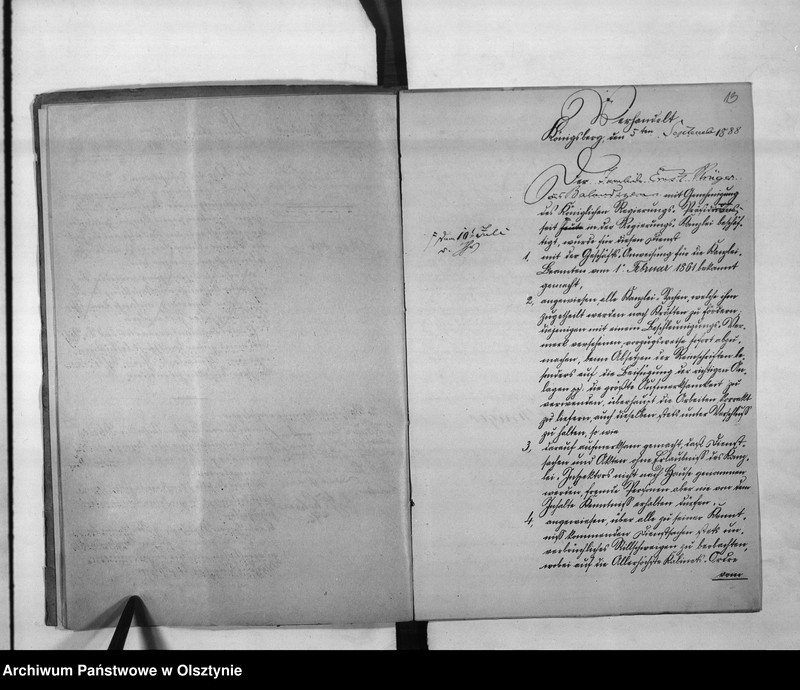 13
Verhandelt
Königsberg, den 5ten September 1888
Der Ernst Krüger
mit Genehmigung
des Königlichen Regierungs-Präsidenten
seit heute in der Regierungs-Kanzlei beschäf-
tigt, wurde für diesen Dienst
† dem 19t. Juli
1, mit der Geschäfts-Anweisung für die Kanzlei-
Beamten vom 1. Februar 1861 bekannt
gemacht,
2, angewiesen, alle Kanzlei-Sachen, welche ihm
zugetheilt werden nach Kräften zu fördern,
diejenigen mit einem Beschleunigungs-Ver-
merk versehenen, vorzugsweise sofort abzu-
machen, beim Absetzen der Reinschriften be-
sonders auf die Beifügung der richtigen An-
lagen pp. die größte Aufmerksamkeit zu
verwenden, überhaupt die Arbeiten korrekt
zu liefern, auch dieselben stets unter Verschluß
zu halten, so wie
3, darauf aufmerksam gemacht, daß Dienst-
sachen und Akten ohne Erlaubniß des Kanz-
lei-Inspektors nicht nach Hause genommen
werden, fremde Personen aber nie von dem
Inhalte Kenntniß erhalten dürfen.
4, angewiesen, über alle zu seiner Kennt-
niß kommenden Dienstsachen stets un-
verbrüchliches Stillschweigen zu beobachten,
wobei auf die Allerhöchste Kabinets-Ordre
vom
Archiwum Państwowe w Olsztynie